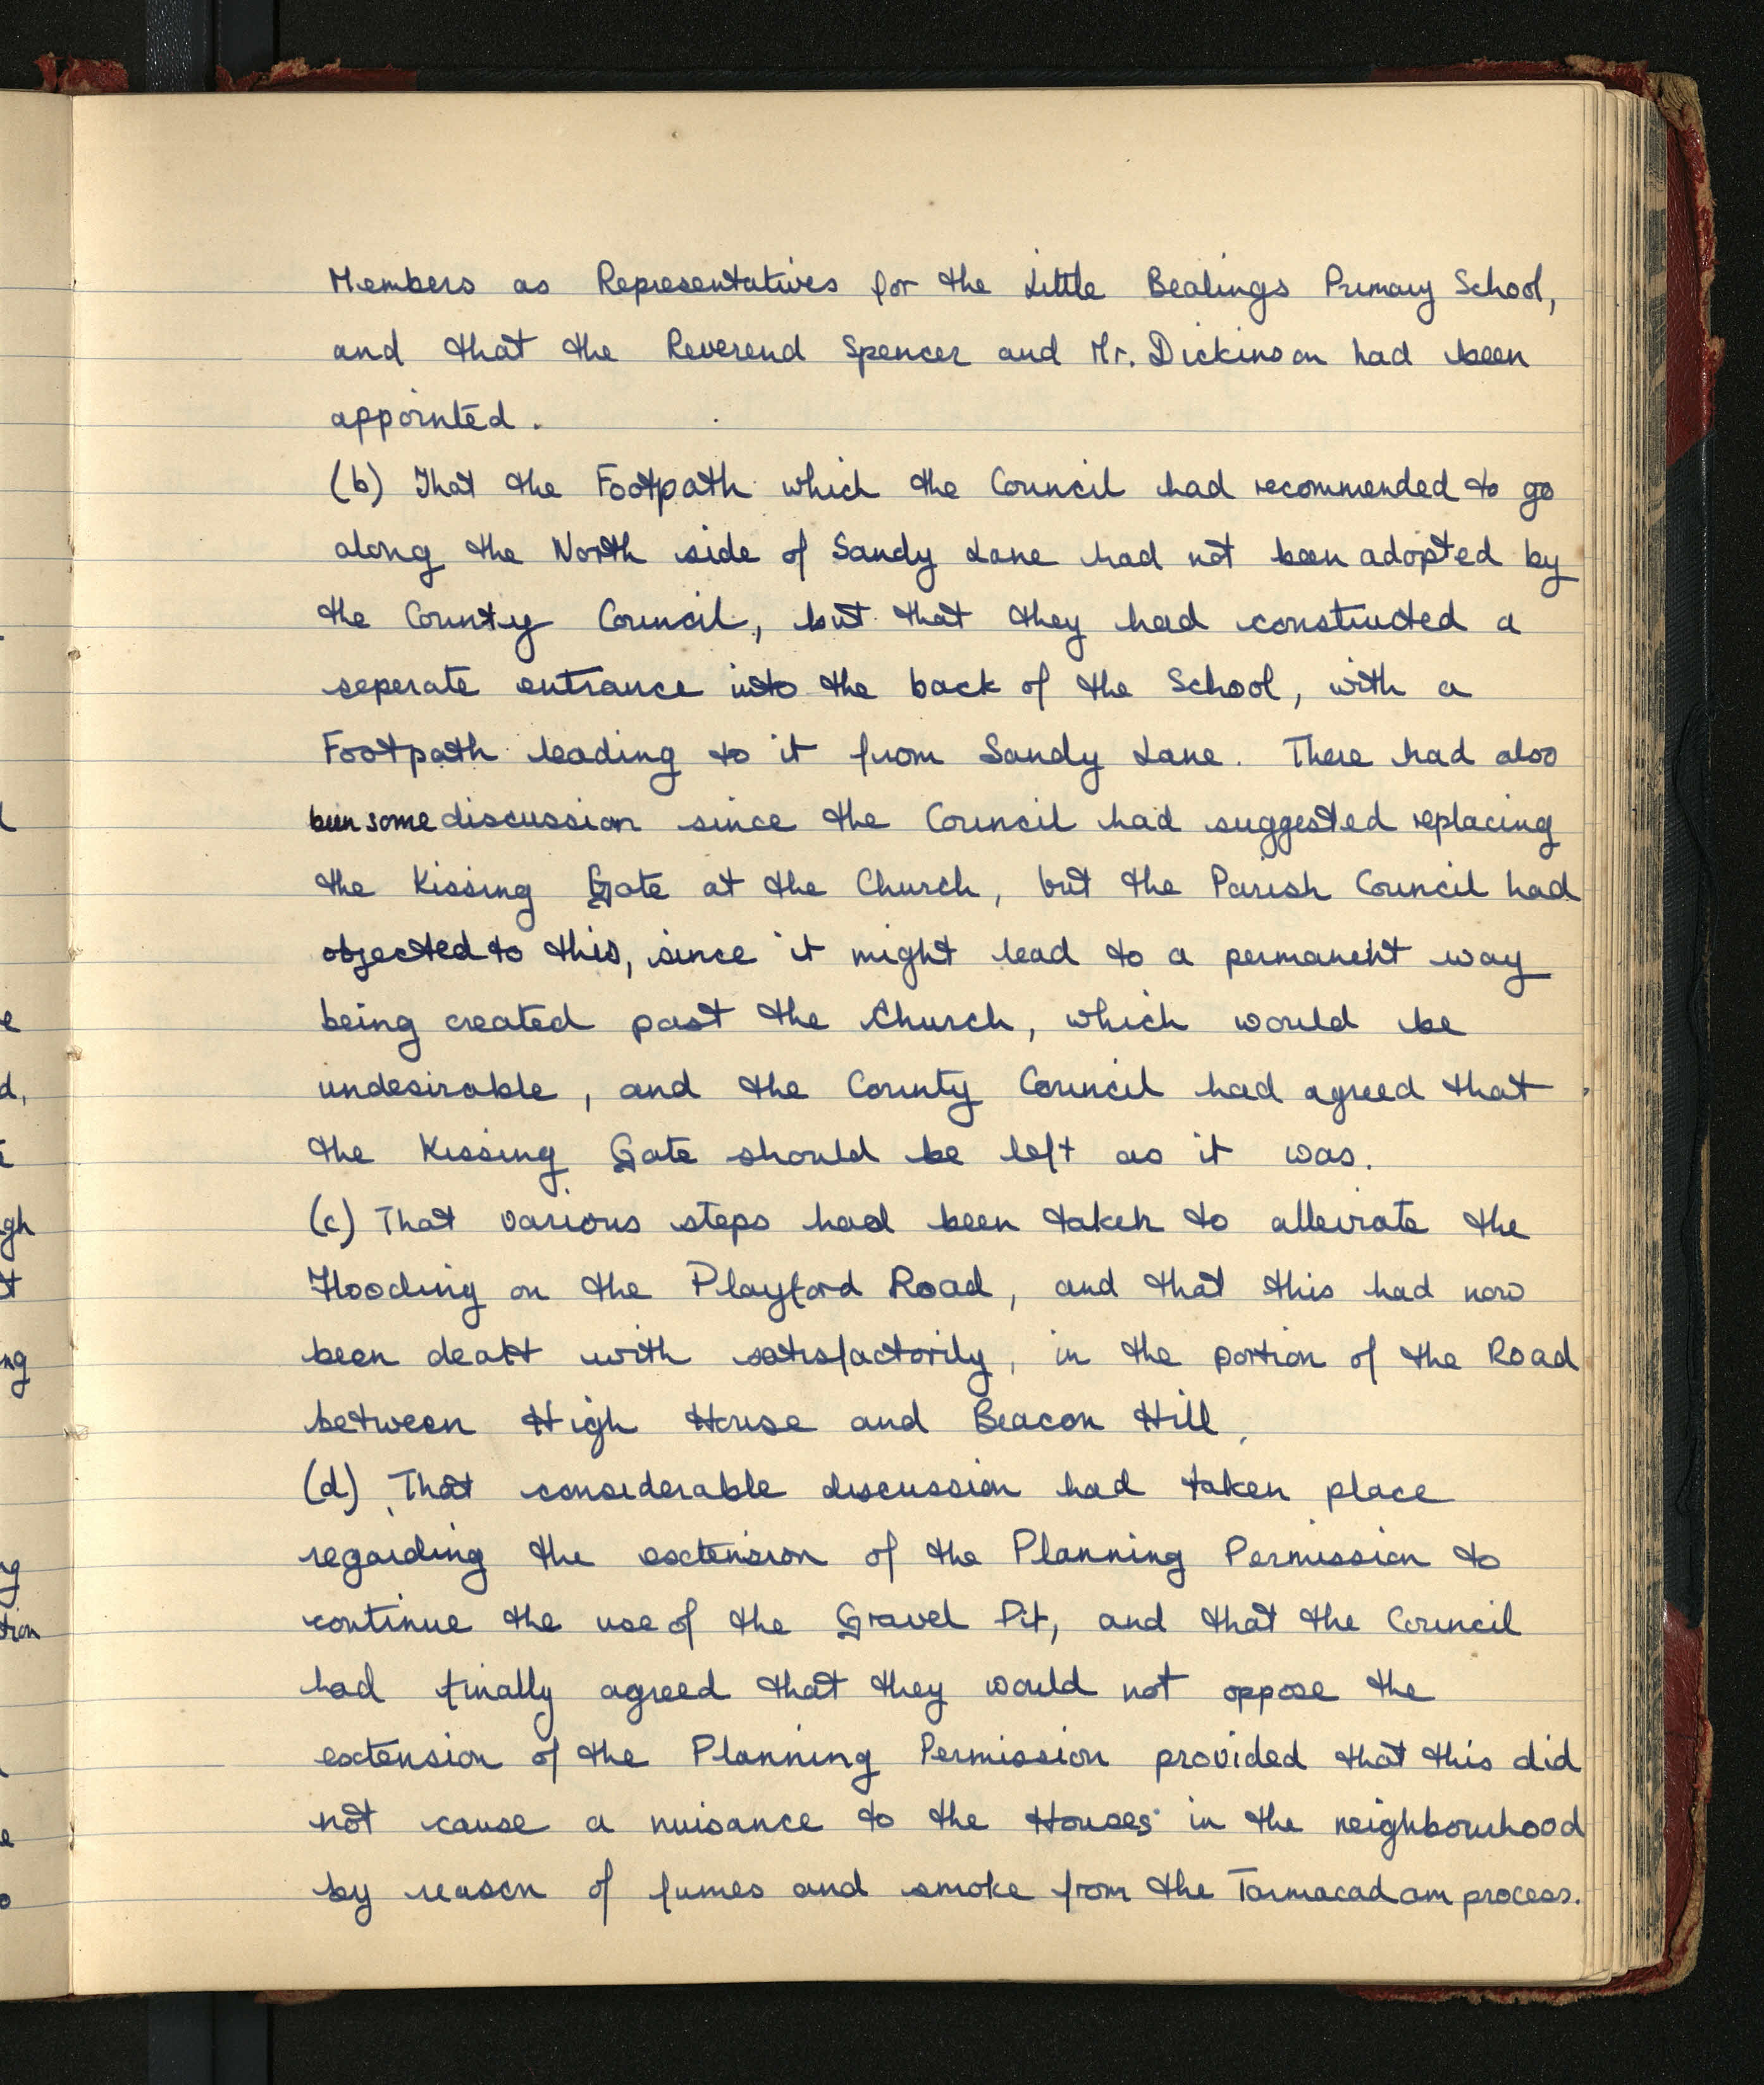 Members as Representatives for the Little Bealings Primary School,
and that the Reverend Spencer and Mr. Dickinson had been
appointed.
(b) That the Footpath which the Council had recommended to go
along the North side of Sandy Lane had not been adopted by
the County Council, but that they had constructed a
seperate entrance into the back of the School, with a
Footpath leading to it from Sandy Lane. There had also
been some discussion since the Council had suggested replacing
the Kissing Gate at the Church, but the Parish Council had
objected to this, since it might lead to a permanent way
being created past the Church, which would be
undesirable, and the County Council had agreed that
the Kissing Gate should be left as it was.
(c) That various steps had been taken to alleviate the
Flooding on the Playford Road, and that this had now
been dealt with satisfactorily, in the portion of the Road
between High House and Beacon Hill.
(d) That considerable discussion had taken place
regarding the extension of the Planning Permission to
continue the use of the Gravel Pit, and that the Council
had finally agreed that they would not oppose the
extension of the Planning Permission provided that this did
not cause a nuisance to the Houses in the neighbourhood
by reason of fumes and smoke from the Tarmacadam process.